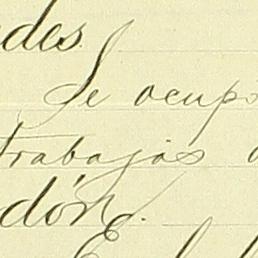 des.
Se ocup
trabajos
dón.